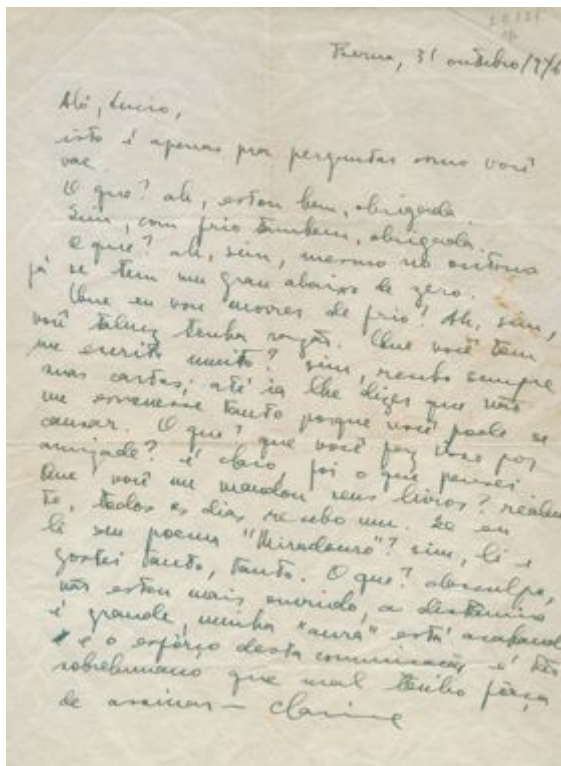 Berna, 31 outubro/946
Alô, Lucio,
isto é apenas pra perguntar como você
vae.
O que? ah, estou bem, obrigada.
Sim, com frio tambem, obrigada.
O que? ah, sim, mesmo no outono
já se tem um grau abaixo de zero.
Que eu vou morrer de frio! Ah, sim,
você talvez tenha razão. Que você tem
me escrito muito? sim, recebo sempre
suas cartas; até ia lhe dizer que não
me escrevesse tanto porque você pode se
cansar. O que? que você faz isso por
amizade? é claro, foi o que pensei
Que você me mandou seus livros? realmen
te, todos os dias recebo um. Se eu
li seu poema "Miradouro"? sim, li e
gostei tanto, tanto. O que? desculpe,
não estou mais ouvindo, a distancia
é grande, minha "aura" está acabando
e o esfôrço desta comunicação é tão
sobrehumano que mal tenho fôrça
de assinar — Clarice